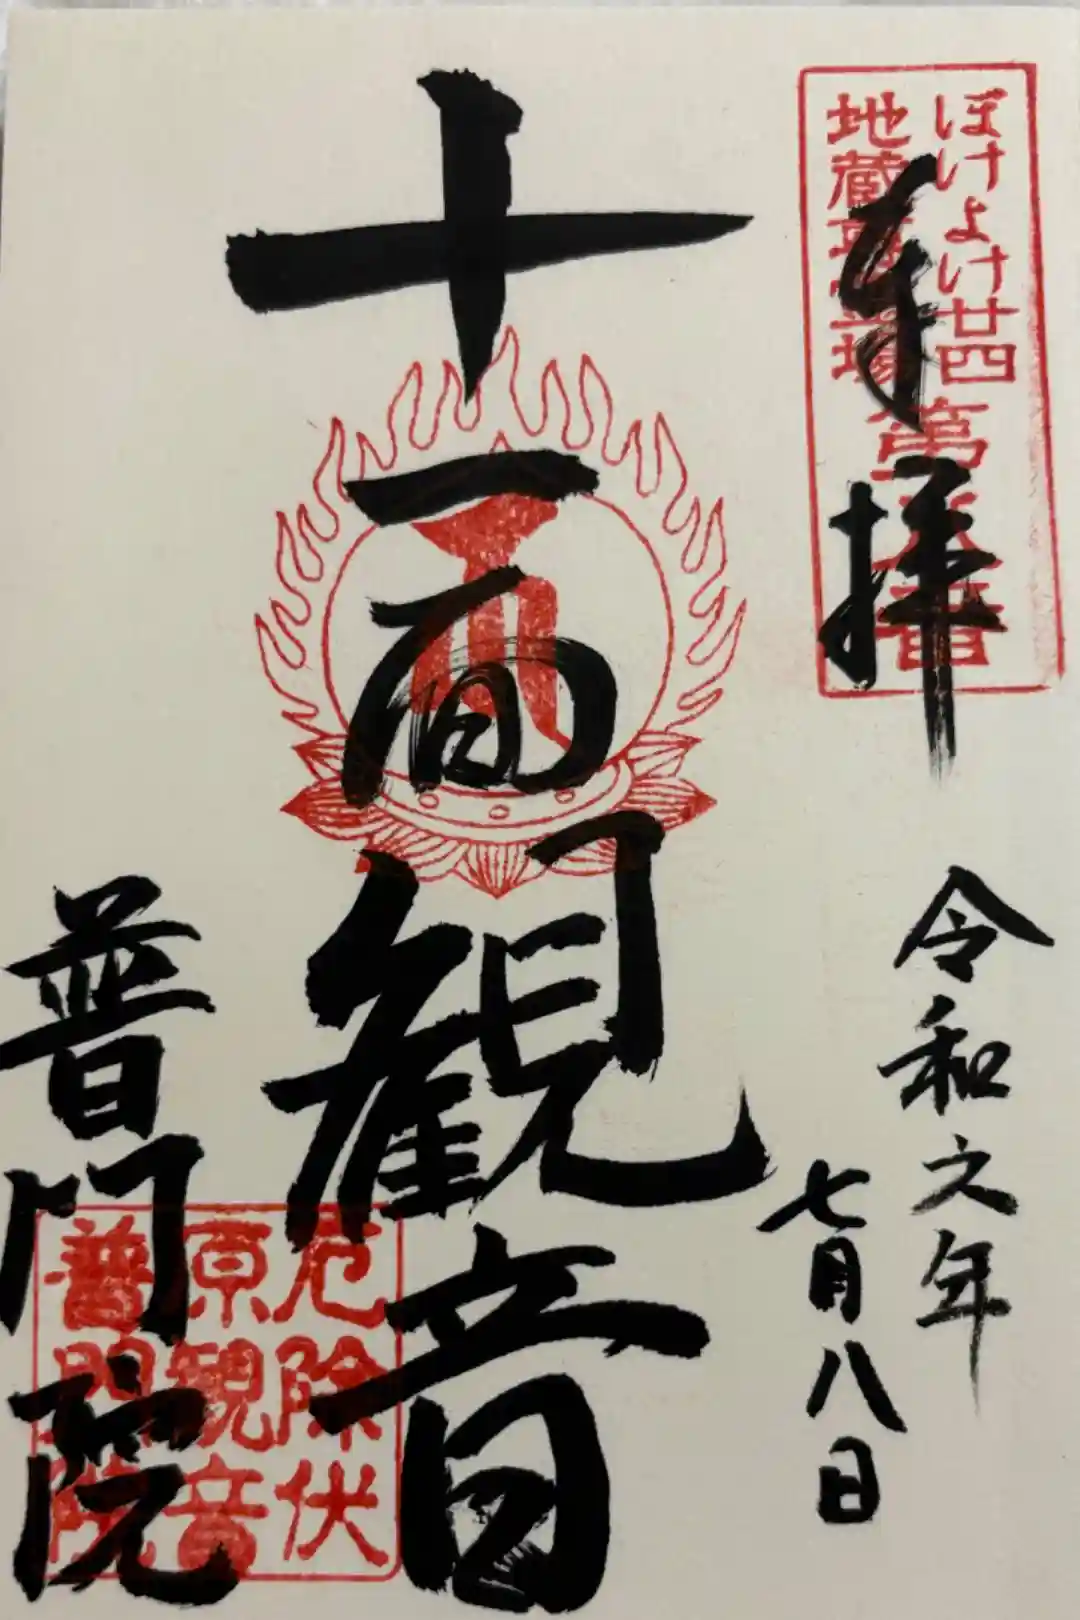 ぼけよけ廿四
地蔵尊霊場
第六番
奉拝
令和元年
七月八日
十一面観音
普門院
厄除伏
原観音
普門院